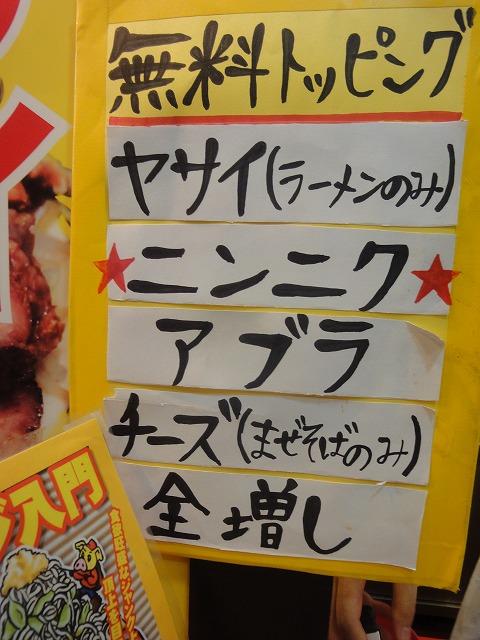 無料トッピング
ヤサイ(ラーメンのみ)
★ニンニク★
アブラ
チーズ(まぜそばのみ)
全増し
入門